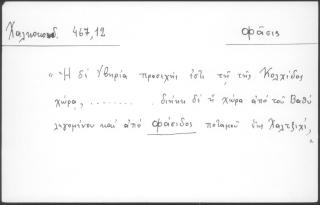 Χαλκοκονδ. 467,12 Φᾶσις
"Ἡ δὲ Ἰβηρία προσεχὴς ἐστὶ τῇ τῆς Κολχίδος
χώρᾳ, ......... διήκει δὲ ἡ χώρα ἀπὸ τοῦ Βαθύ
λεγομένου καὶ ἀπὸ Φάσιδος ποταμοῦ ἕως Χαλτζιχί,"